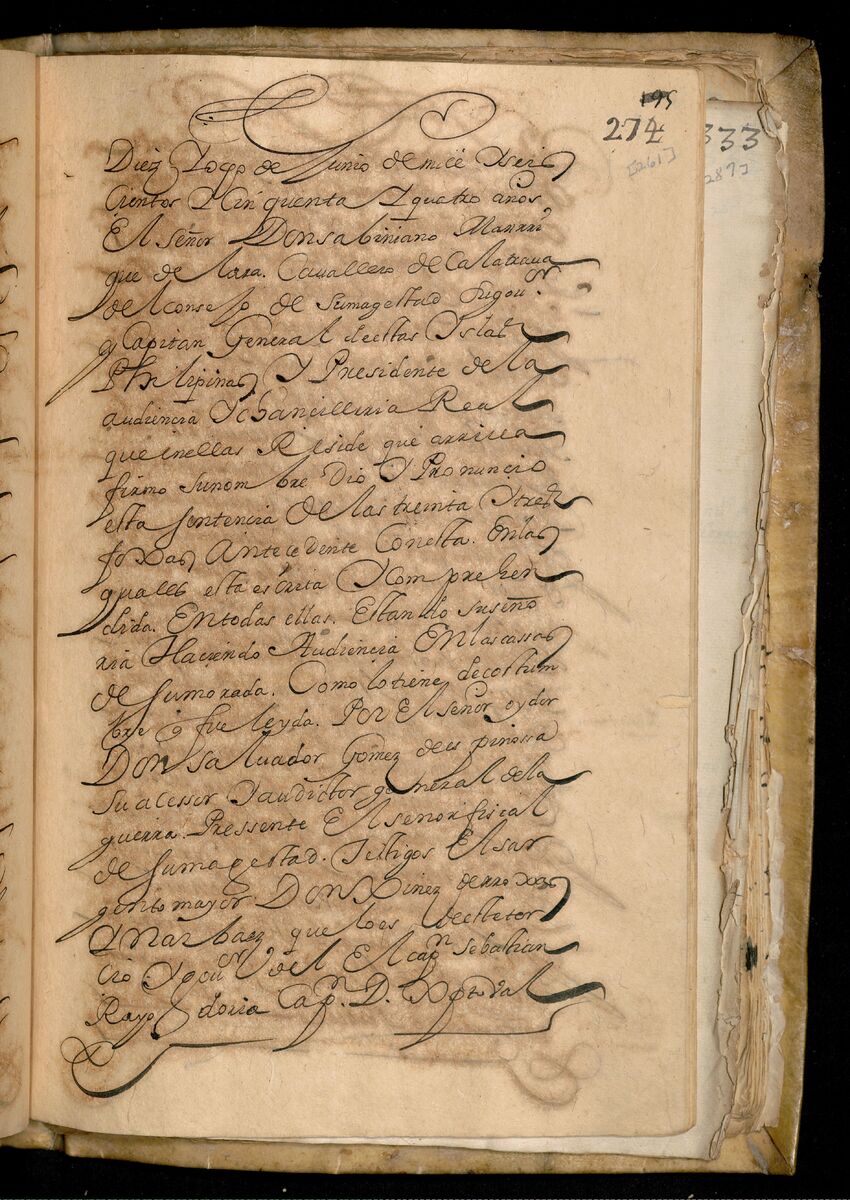 195
274
333
[261]
287]
Diez Yocho de Junio de mill Yseis
cientos Ycinquenta Yquatro años
El señor Don sabiniano Manrri
que de Lara. Cavallero de Calatraua
del consejo de sumagestad sugou.or
y Capitan General destas Yslas
Philipinas Y Presidente de la
audiencia Ychancilleria Real
que enellas Reside que arriua
firmo sunombre Dio Y Pronuncio
esta sentencia De las treinta Ytres
foxas Antecedente Conesta. Enlas
quales esta escrita Ycomprehen
dida. Entodas ellas. Estando suseño
ria Haciendo Audiencia Enlascassas
de sumorada. Como lotiene decostum
bre y fue leyda. Por El señor oydor
Don saluador Gomez dees pinossa
su acessor Yauditor general dela
guerra. Pressente El señor fiscal
de sumagestad. Testigos El sar
gento mayor Don Xinez derroxas
Ynarbaez que loes deesteter
cio Ygou.or del El cap.n sebastian
Rayo doria Cap.n D. Xptoval